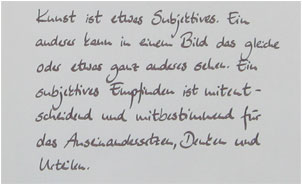 Kunst ist etwas Subjektives. Ein
anderer kann in einem Bild das gleiche
oder etwas ganz anderes sehen. Ein
subjektives Empfinden ist mitent-
scheidend und mitbestimmend für
das Auseinandersetzen, Denken und
Urteilen.